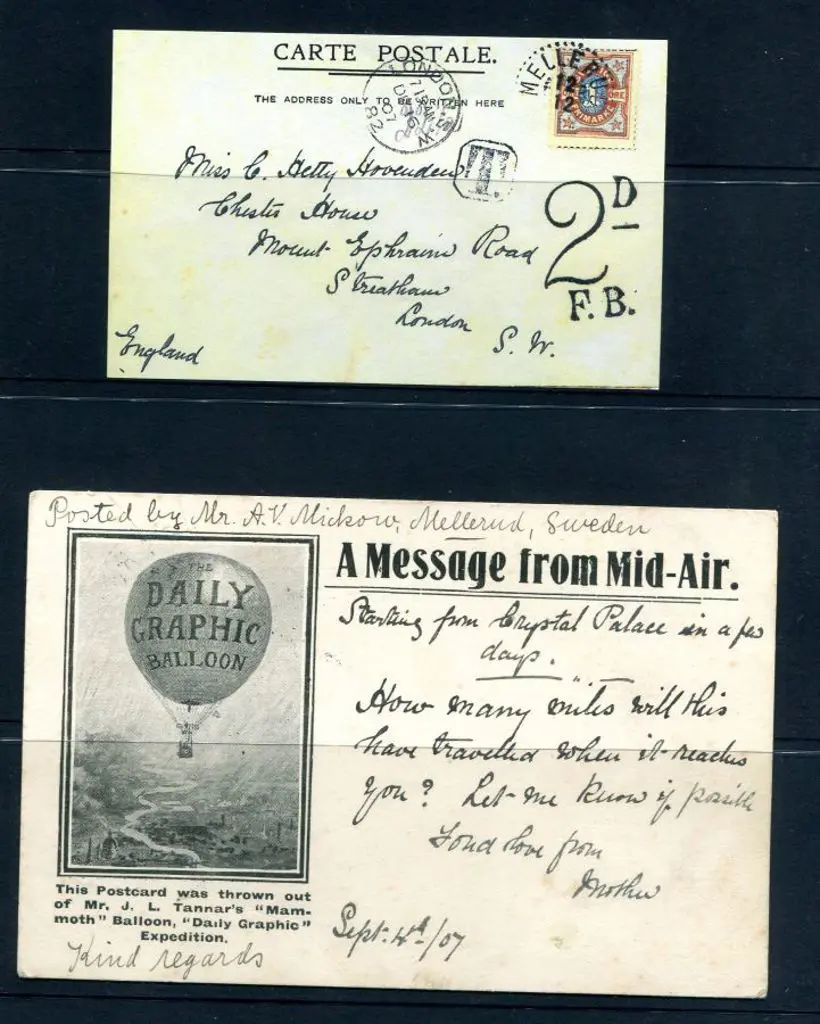 CARTE POSTALE.
THE ADDRESS ONLY TO BE WRITTEN HERE
LONDON S.W
7 15 AM
DE 16
07
82
MELLERUD
12
12
T.
Miss C. Hetty Hovenden
Chester House
Mount Ephraim Road
Streatham
London
S. W.
England
2D
F.B.
Posted by Mr. A.V. Mickow, Mellerud, Sweden
A Message from Mid-Air.
THE
DAILY
GRAPHIC
BALLOON
Starting from Crystal Palace in a few
days.
How many miles will this
have travelled when it reaches
you? Let me know if possible
Fond love from
Mother
Sept. 4th/07
This Postcard was thrown out
of Mr. J. L. Tannar's "Mam-
moth" Balloon, "Daily Graphic"
Expedition.
Kind regards